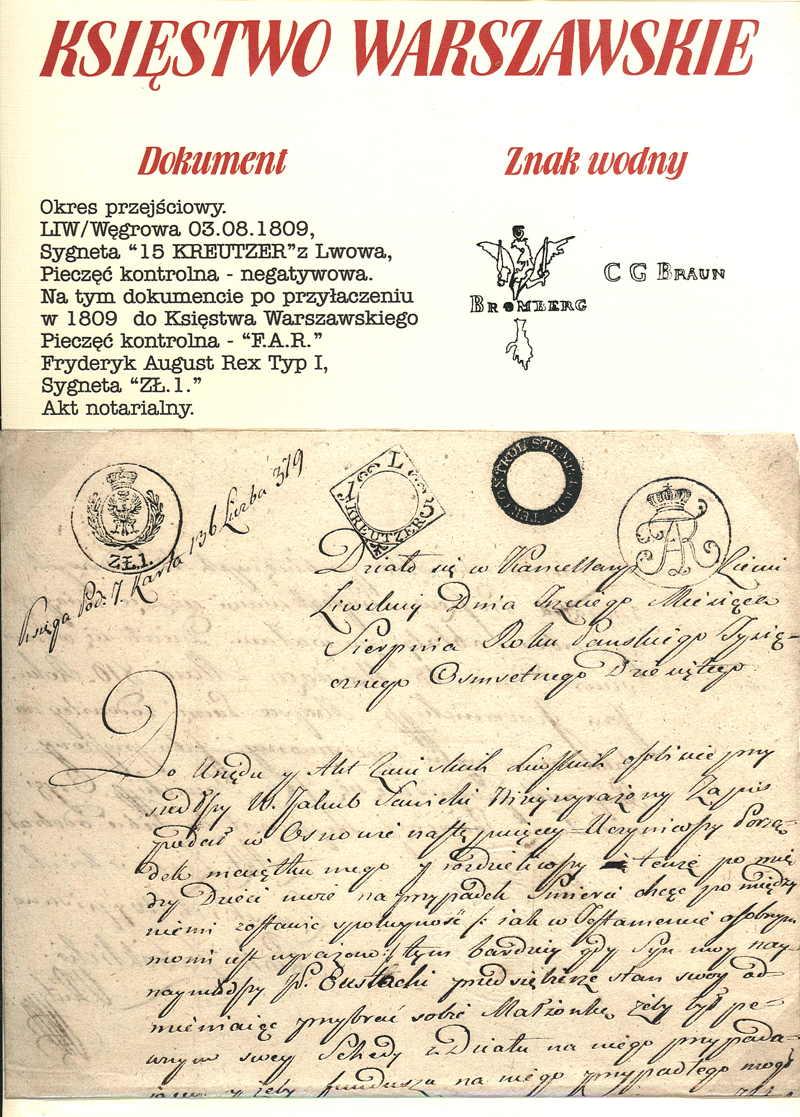 KSIĘSTWO WARSZAWSKIE
Dokument
Okres przejściowy.
LIW/Węgrowa 03.08.1809,
Sygneta “15 KREUTZER”z Lwowa,
Pieczęć kontrolna - negatywowa.
Na tym dokumencie po przyłaczeniu
w 1809 do Księstwa Warszawskiego
Pieczęć kontrolna - “F.A.R.”
Fryderyk August Rex Typ I,
Sygneta “ZŁ.1.”
Akt notarialny.
Znak wodny
BROMBERG
C G BRAUN
ZŁ.1.
Księga Pod: 7. Karta 136 Liczba 319
15 L
KREUTZER
KONTROL STEMPEL
FAR
Działo się w Ziemi
Liwskiey Dnia Trzeciego Miesiąca
Sierpnia Roku Panskiego Tysią-
cznego Osmsetnego Dziewiątego
Do Urzędu y Akt przy
W. Jakub Zapis
podał w Osnowie następuiącey Uczyniwszy Porzą-
dek maiątku mego y rozdzieliwszy tenże po mię-
dzy Dzieci moie na przypadek Smierci chcąc po między
niemi zostawić iak w Testamencie osobnym
tym bardziey gdy Syn moy nay
naymłodszy P. Eustachi przedsiębierze stan swoy od-
mieniaiąc przybrać sobie Małżonkę, żeby był pe-
wnym swey Schedy z Działu na niego przypada-
y żeby fundusza na niego przypadłego mogł